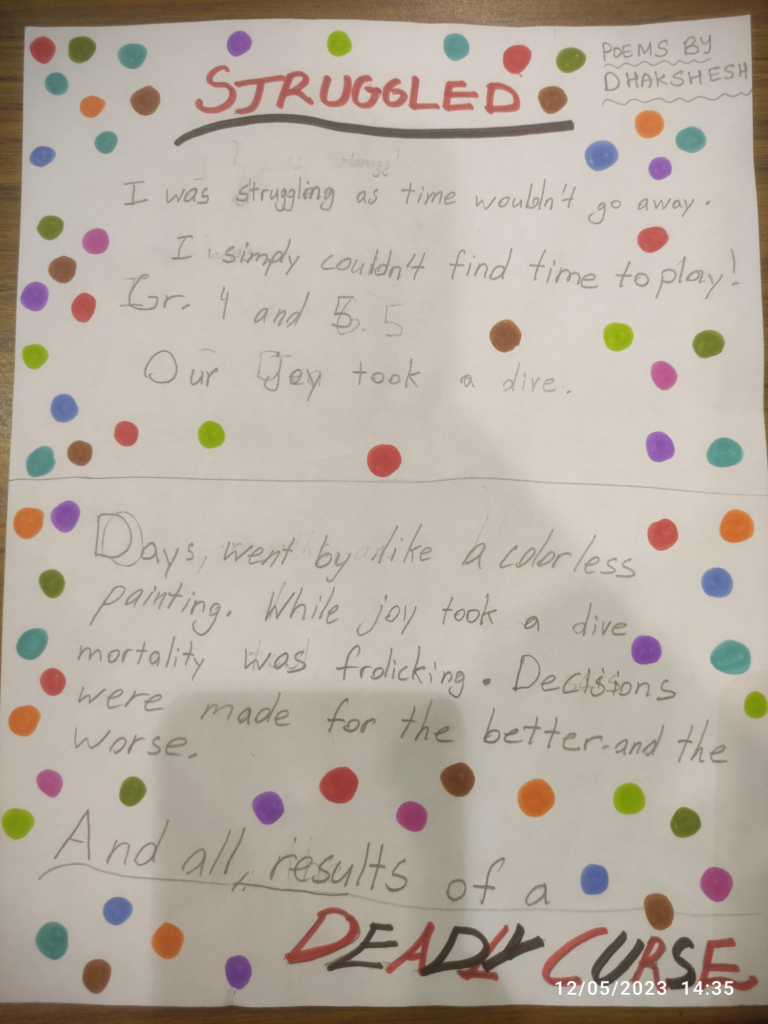 POEMS BY
DHAKSHESH
STRUGGLED
I was struggling as time wouldn't go away.
I simply couldn't find time to play!
Gr. 4 and 5. 5
Our Joy took a dive.
Days, went by like a colorless
painting. While joy took a dive
mortality was frolicking. Decisions
were made for the better. and the
worse.
And all, results of a
DEADLY CURSE
12/05/2023 14:35